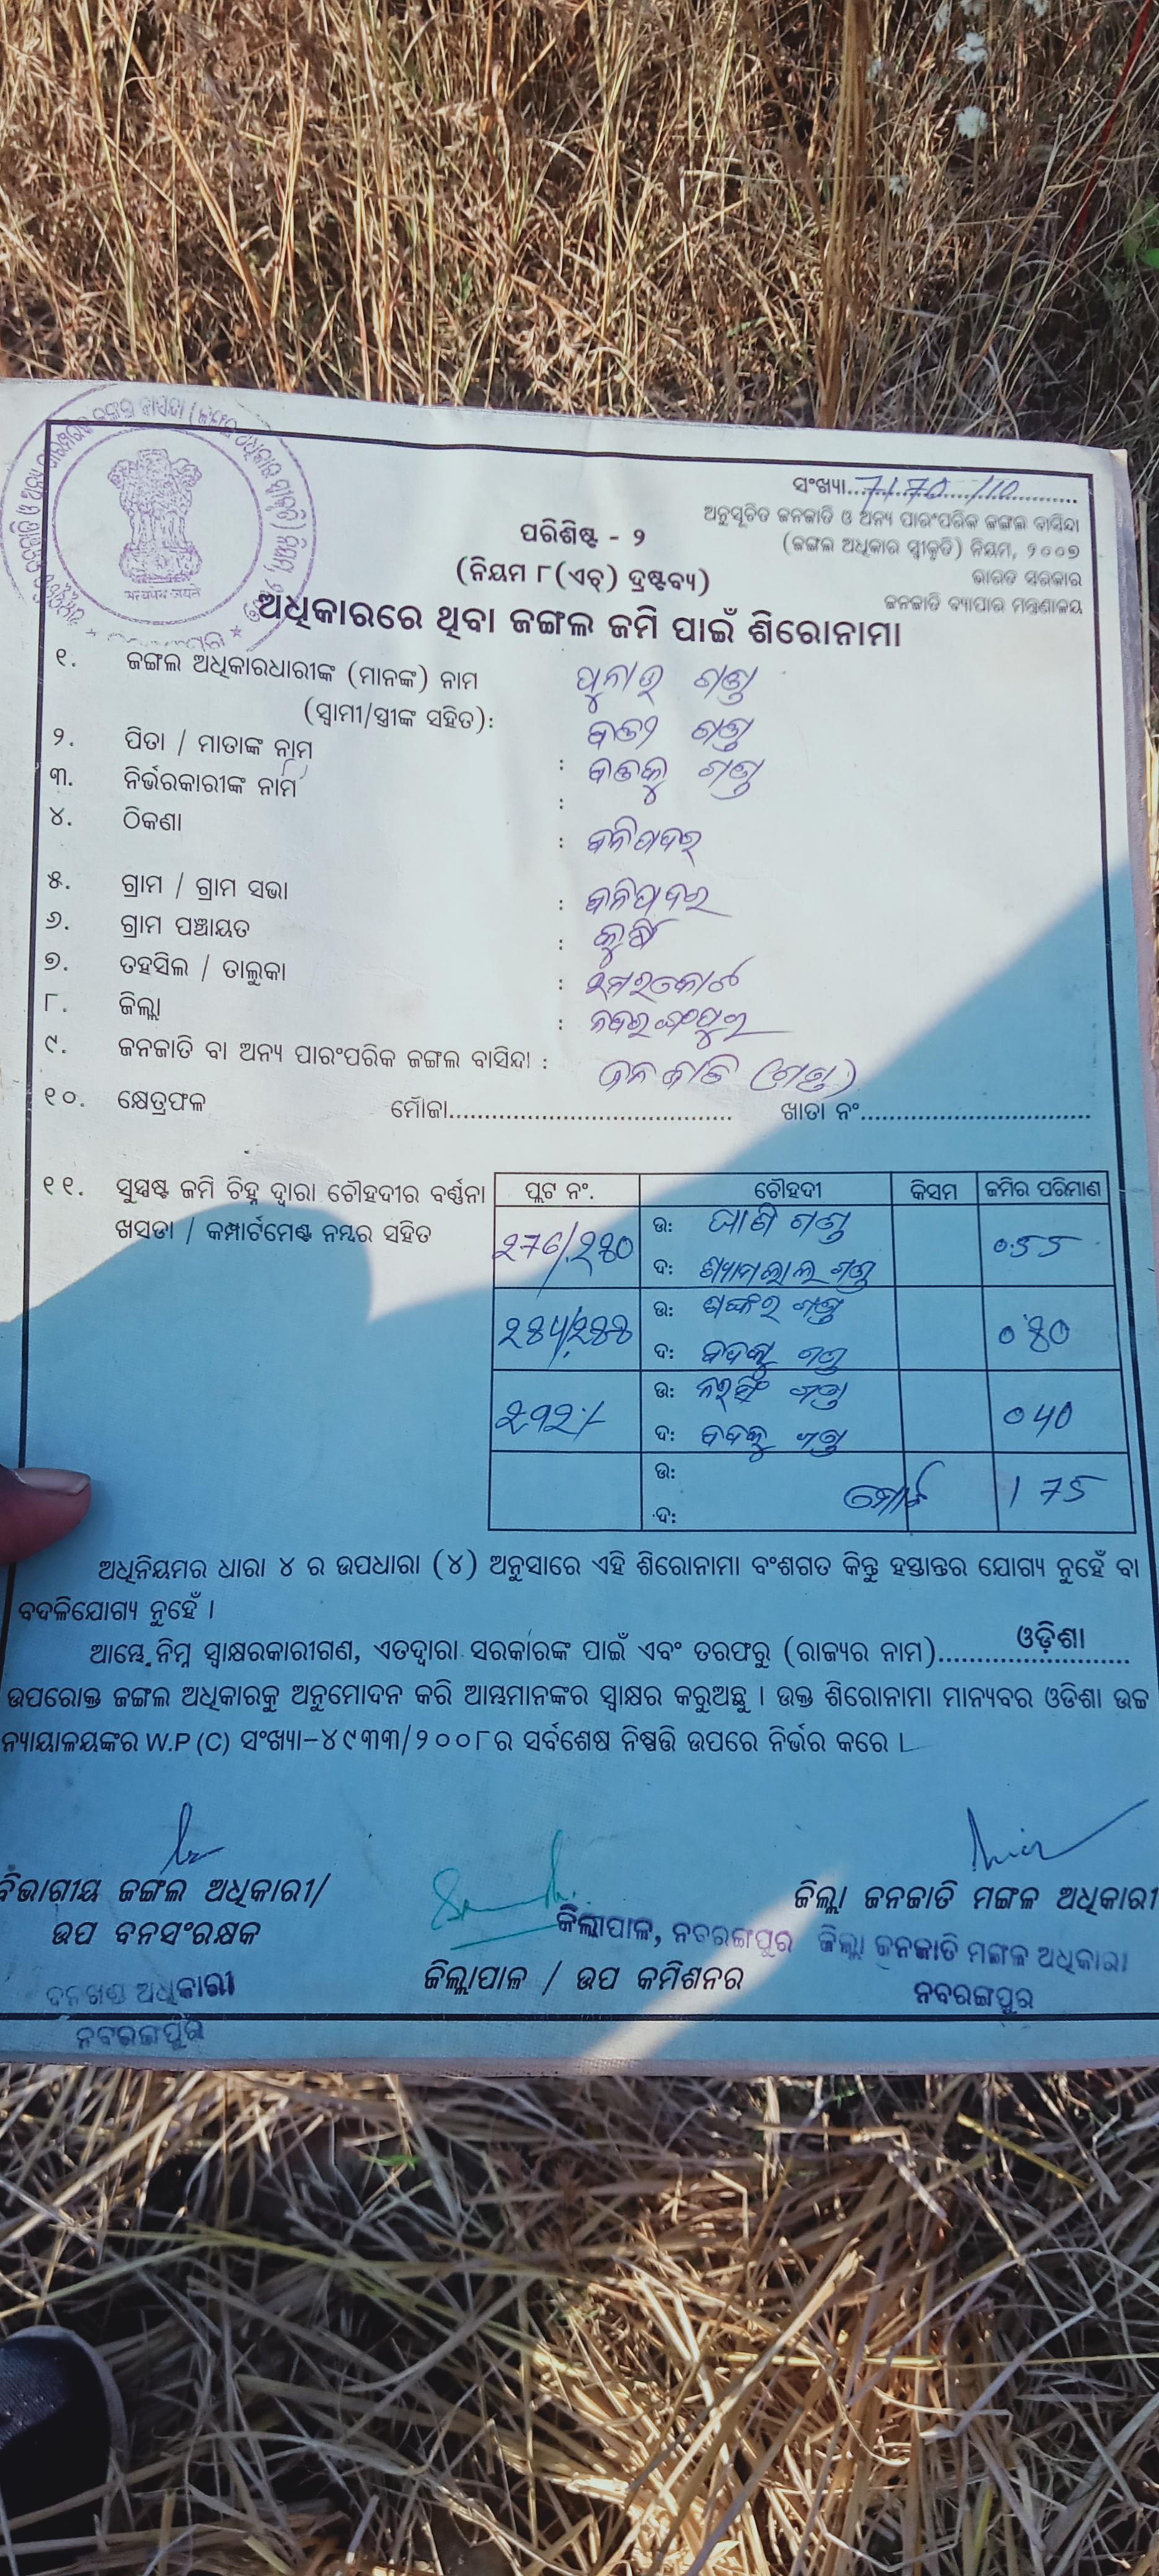 ସଂଖ୍ୟା....7170/10....
ଅନୁସୂଚିତ ଜନଜାତି ଓ ଅନ୍ୟ ପାରଂପରିକ ଜଙ୍ଗଲ ବାସିନ୍ଦା
(ଜଙ୍ଗଲ ଅଧିକାର ସ୍ୱୀକୃତି) ନିୟମ, ୨୦୦୭
ଭାରତ ସରକାର
ଜନଜାତି ବ୍ୟାପାର ମନ୍ତ୍ରଣାଳୟ
ପରିଶିଷ୍ଟ - ୨
(ନିୟମ ୮(ଏଚ୍) ଦ୍ରଷ୍ଟବ୍ୟ)
ଅଧିକାରରେ ଥିବା ଜଙ୍ଗଲ ଜମି ପାଇଁ ଶିରୋନାମା
सत्यमेव जयते
୧. ଜଙ୍ଗଲ ଅଧିକାରଧାରୀଙ୍କ (ମାନଙ୍କ) ନାମ ଗଣ୍ଡ
(ସ୍ୱାମୀ/ସ୍ତ୍ରୀଙ୍କ ସହିତ): ଗଣ୍ଡ
୨. ପିତା / ମାତାଙ୍କ ନାମ : ଗଣ୍ଡ
୩. ନିର୍ଭରକାରୀଙ୍କ ନାମ :
୪. ଠିକଣା :
୫. ଗ୍ରାମ / ଗ୍ରାମ ସଭା :
୬. ଗ୍ରାମ ପଞ୍ଚାୟତ :
୭. ତହସିଲ / ତାଲୁକା : ଉମରକୋଟ
୮. ଜିଲ୍ଲା : ନବରଙ୍ଗପୁର
୯. ଜନଜାତି ବା ଅନ୍ୟ ପାରଂପରିକ ଜଙ୍ଗଲ ବାସିନ୍ଦା : ଜନଜାତି (ଗଣ୍ଡ)
୧୦. କ୍ଷେତ୍ରଫଳ ମୌଜା........................................ ଖାତା ନଂ................................
୧୧. ସୁସ୍ପଷ୍ଟ ଜମି ଚିହ୍ନ ଦ୍ୱାରା ଚୌହଦୀର ବର୍ଣ୍ଣନା
ଖସଡା / କମ୍ପାର୍ଟମେଣ୍ଟ ନମ୍ବର ସହିତ
ପ୍ଲଟ ନଂ. ଚୌହଦୀ କିସମ ଜମିର ପରିମାଣ
ଉ: ଗଣ୍ଡ
ଦ: ଶ୍ୟାମଲାଲ ଗଣ୍ଡ
0.55
ଉ: ଶଙ୍କର ଗଣ୍ଡ
ଦ: ଗଣ୍ଡ
ଉ: ଗଣ୍ଡ
ଦ: ଗଣ୍ଡ
ଉ:
ଦ:
ମୋଟ 1 75
ଅଧିନିୟମର ଧାରା ୪ ର ଉପଧାରା (୪) ଅନୁସାରେ ଏହି ଶିରୋନାମା ବଂଶଗତ କିନ୍ତୁ ହସ୍ତାନ୍ତର ଯୋଗ୍ୟ ନୁହେଁ ବା
ବଦଳିଯୋଗ୍ୟ ନୁହେଁ ।
ଆମ୍ଭେ ନିମ୍ନ ସ୍ୱାକ୍ଷରକାରୀଗଣ, ଏତଦ୍ୱାରା ସରକାରଙ୍କ ପାଇଁ ଏବଂ ତରଫରୁ (ରାଜ୍ୟର ନାମ)....ଓଡ଼ିଶା....
ଉପରୋକ୍ତ ଜଙ୍ଗଲ ଅଧିକାରକୁ ଅନୁମୋଦନ କରି ଆମ୍ଭମାନଙ୍କର ସ୍ୱାକ୍ଷର କରୁଅଛୁ । ଉକ୍ତ ଶିରୋନାମା ମାନ୍ୟବର ଓଡିଶା ଉଚ୍ଚ
ନ୍ୟାୟାଳୟଙ୍କର W.P (C) ସଂଖ୍ୟା-୪୯୩୩/୨୦୦୮ର ସର୍ବଶେଷ ନିଷ୍ପତ୍ତି ଉପରେ ନିର୍ଭର କରେ ।
ବିଭାଗୀୟ ଜଙ୍ଗଲ ଅଧିକାରୀ/
ଉପ ବନସଂରକ୍ଷକ
ବନଖଣ୍ଡ ଅଧିକାରୀ
ନବରଙ୍ଗପୁର
ଜିଲ୍ଲାପାଳ, ନବରଙ୍ଗପୁର
ଜିଲ୍ଲାପାଳ / ଉପ କମିଶନର
ଜିଲ୍ଲା ଜନଜାତି ମଙ୍ଗଳ ଅଧିକାରୀ
ଜିଲ୍ଲା ଜନଜାତି ମଙ୍ଗଳ ଅଧିକାରୀ
ନବରଙ୍ଗପୁର